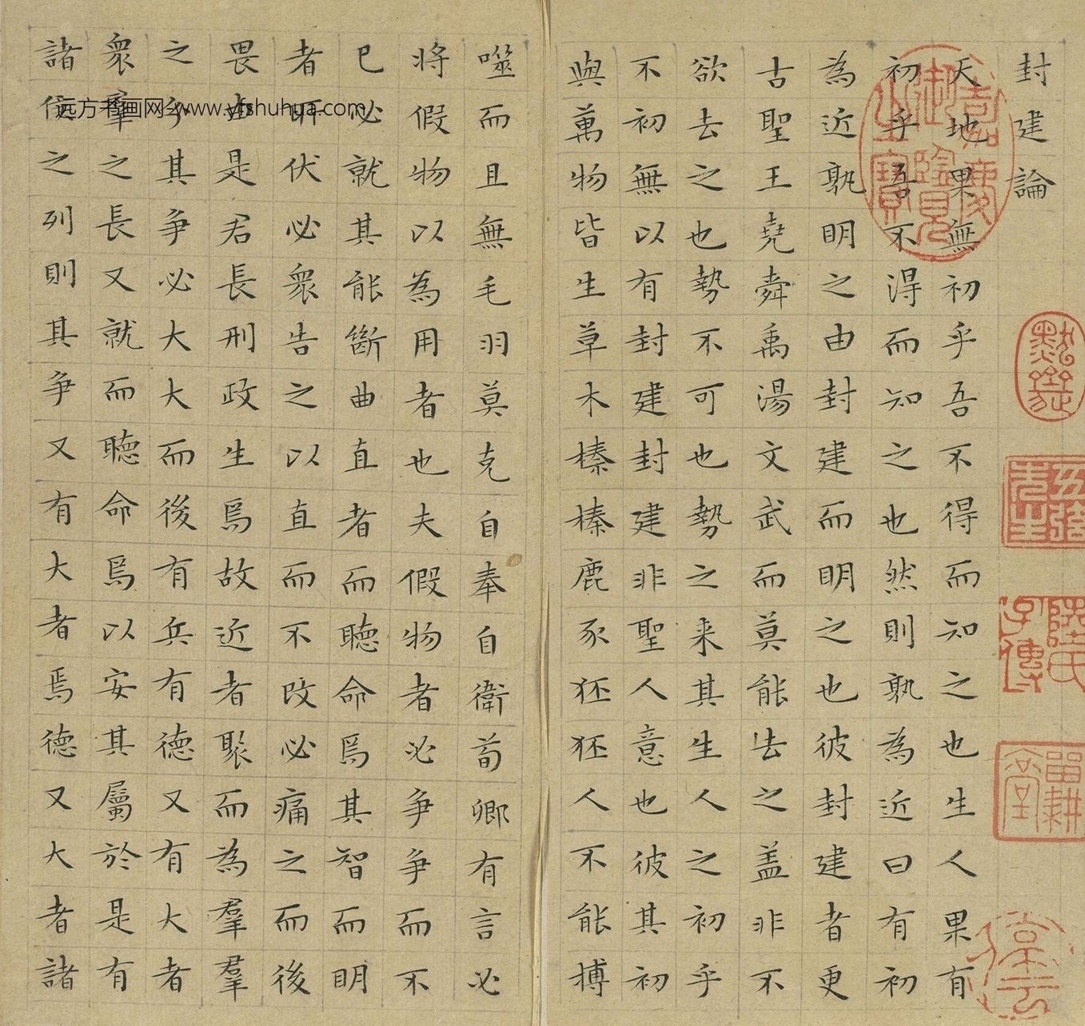 封建論
天地果無初乎吾不得而知之也生人果有
初乎吾不得而知之也然則孰為近曰有初
為近孰明之由封建而明之也彼封建者更
古聖王堯舜禹湯文武而莫能去之盖非不
欲去之也勢不可也勢之来其生人之初乎
不初無以有封建封建非聖人意也彼其初
與萬物皆生草木榛榛鹿豕狉狉人不能搏
噬而且無毛羽莫克自奉自衛荀卿有言必
将假物以為用者也夫假物者必争争而不
已必就其能斷曲直者而聴命焉其智而明
者所伏必衆告之以直而不改必痛之而後
畏由是君長刑政生焉故近者聚而為羣羣
之分其争必大大而後有兵有德又有大者
衆羣之長又就而聴命焉以安其屬於是有
諸侯之列則其争又有大者焉德又大者諸
嘉慶御覽之寶
陸氏子傳
远方书画网-www.yfshuhua.com